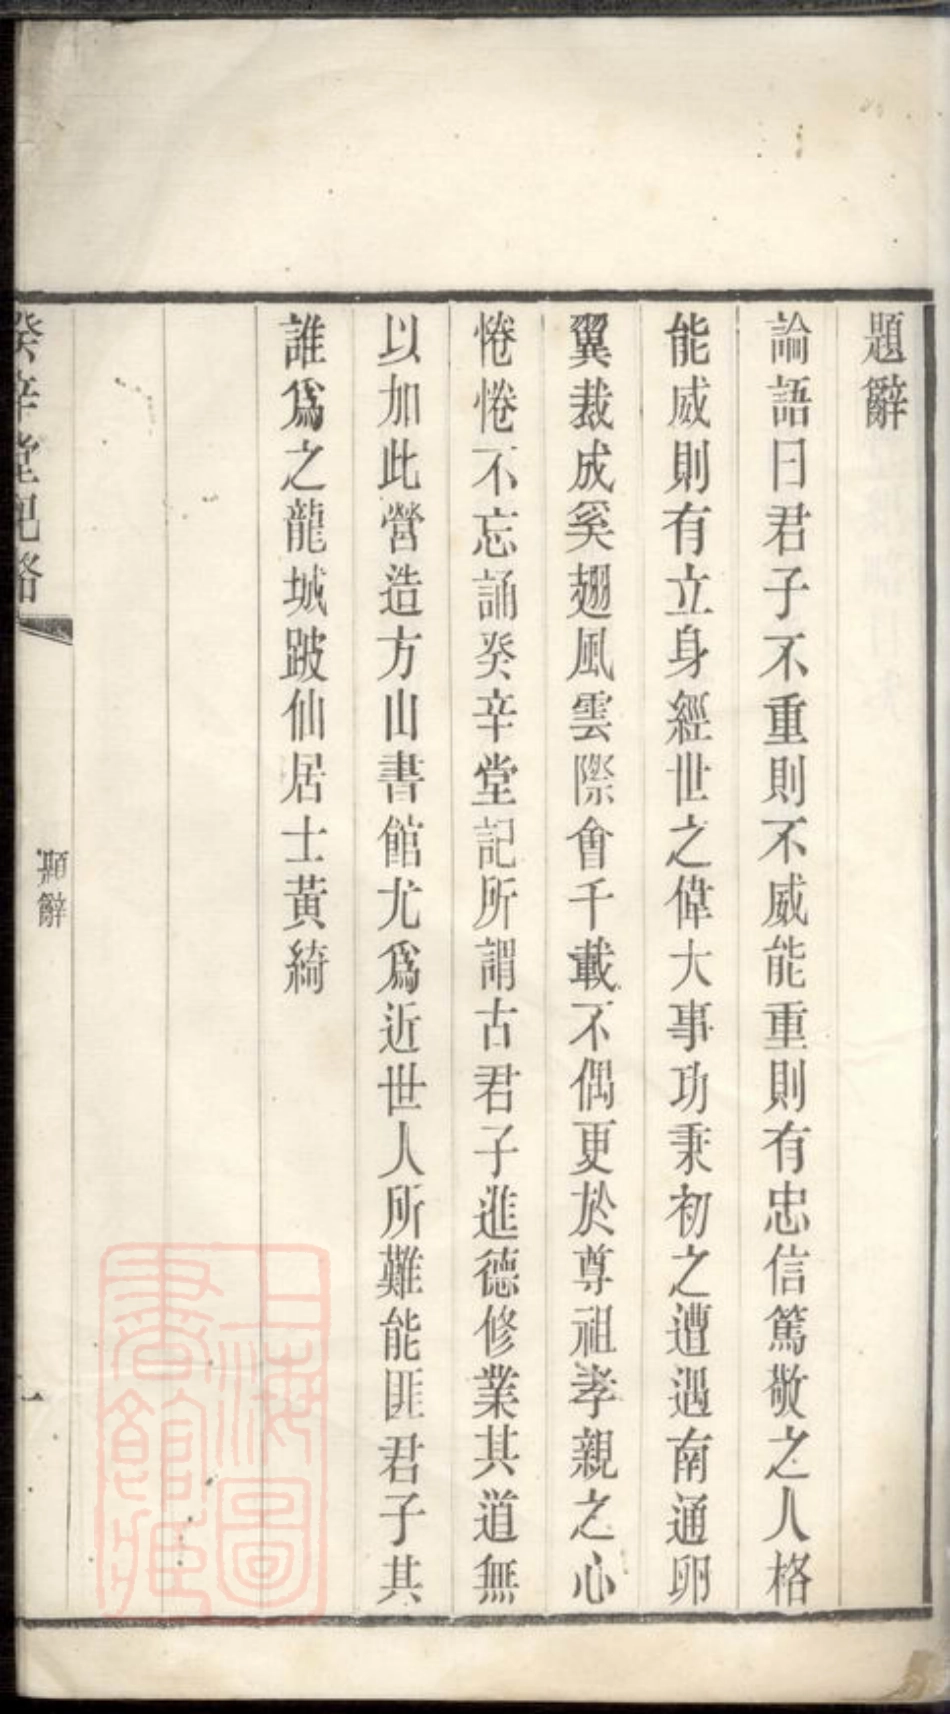 題辭
論語曰君子不重則不威能重則有忠信篤敬之人格
能威則有立身經世之偉大事功秉初之遭遇南通卵
翼裁成奚翅風雲際會千載不偶更於尊祖孝親之心
惓惓不忘誦癸辛堂記所謂古君子進德修業其道無
以加此營造方山書館尤爲近世人所難能匪君子其
誰爲之龍城跛仙居士黃綺
癸辛堂記略
題辭
一
上海圖
書館藏